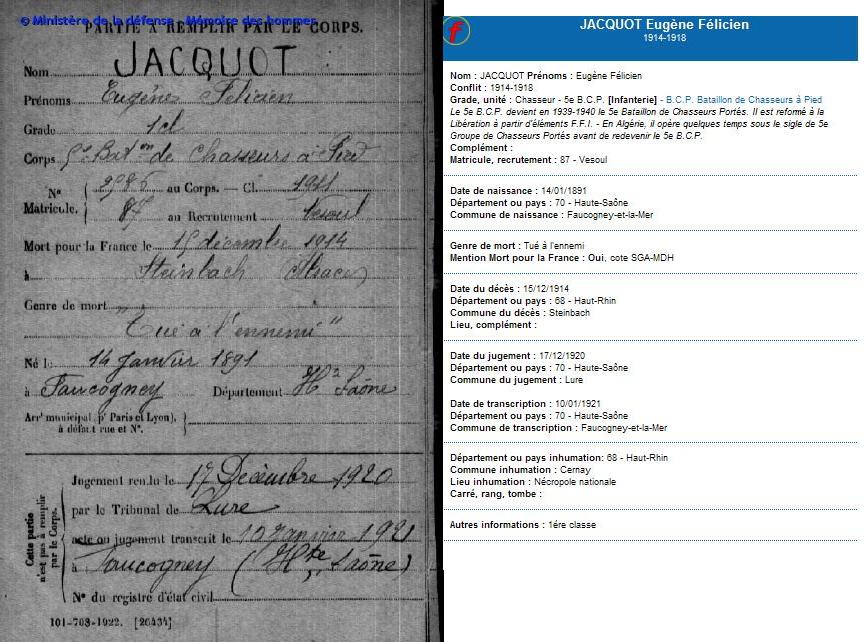 © Ministère de la défense - Mémoire des hommes
PARTIE À REMPLIR PAR LE CORPS.
Nom JACQUOT
Prénoms Eugène Félicien
Grade 1 cl
Corps 5e Baton de Chasseurs à Pied
No
Matricule.
au Corps. — Cl. 1911
87 au Recrutement Vesoul
Mort pour la France le 15 décembre 1914
à Steinbach (Alsace)
Genre de mort
"Tué à l'ennemi"
Né le 14 Janvier 1891
à Faucogney Département Hte Saône
Arrt municipal (pr Paris et Lyon),
à défaut rue et No.
Cette partie
n'est pas à remplir
par le Corps.
Jugement rendu le 17 Décembre 1920
par le Tribunal de Lure
acte ou jugement transcrit le 10 Janvier 1921
à Faucogney (Hte Saône)
No du registre d'état civil
101-708-1922. [26434]
JACQUOT Eugène Félicien
1914-1918
Nom : JACQUOT Prénoms : Eugène Félicien
Conflit : 1914-1918
Grade, unité : Chasseur - 5e B.C.P. [Infanterie] - B.C.P. Bataillon de Chasseurs à Pied
Le 5e B.C.P. devient en 1939-1940 le 5e Bataillon de Chasseurs Portés. Il est reformé à la
Libération à partir d'éléments F.F.I. - En Algérie, il opère quelques temps sous le sigle de 5e
Groupe de Chasseurs Portés avant de redevenir le 5e B.C.P.
Complément :
Matricule, recrutement : 87 - Vesoul
Date de naissance : 14/01/1891
Département ou pays : 70 - Haute-Saône
Commune de naissance : Faucogney-et-la-Mer
Genre de mort : Tué à l'ennemi
Mention Mort pour la France : Oui, cote SGA-MDH
Date du décès : 15/12/1914
Département ou pays : 68 - Haut-Rhin
Commune du décès : Steinbach
Lieu, complément :
Date du jugement : 17/12/1920
Département ou pays : 70 - Haute-Saône
Commune du jugement : Lure
Date de transcription : 10/01/1921
Département ou pays : 70 - Haute-Saône
Commune de transcription : Faucogney-et-la-Mer
Département ou pays inhumation: 68 - Haut-Rhin
Commune inhumation : Cernay
Lieu inhumation : Nécropole nationale
Carré, rang, tombe :
Autres informations : 1ére classe